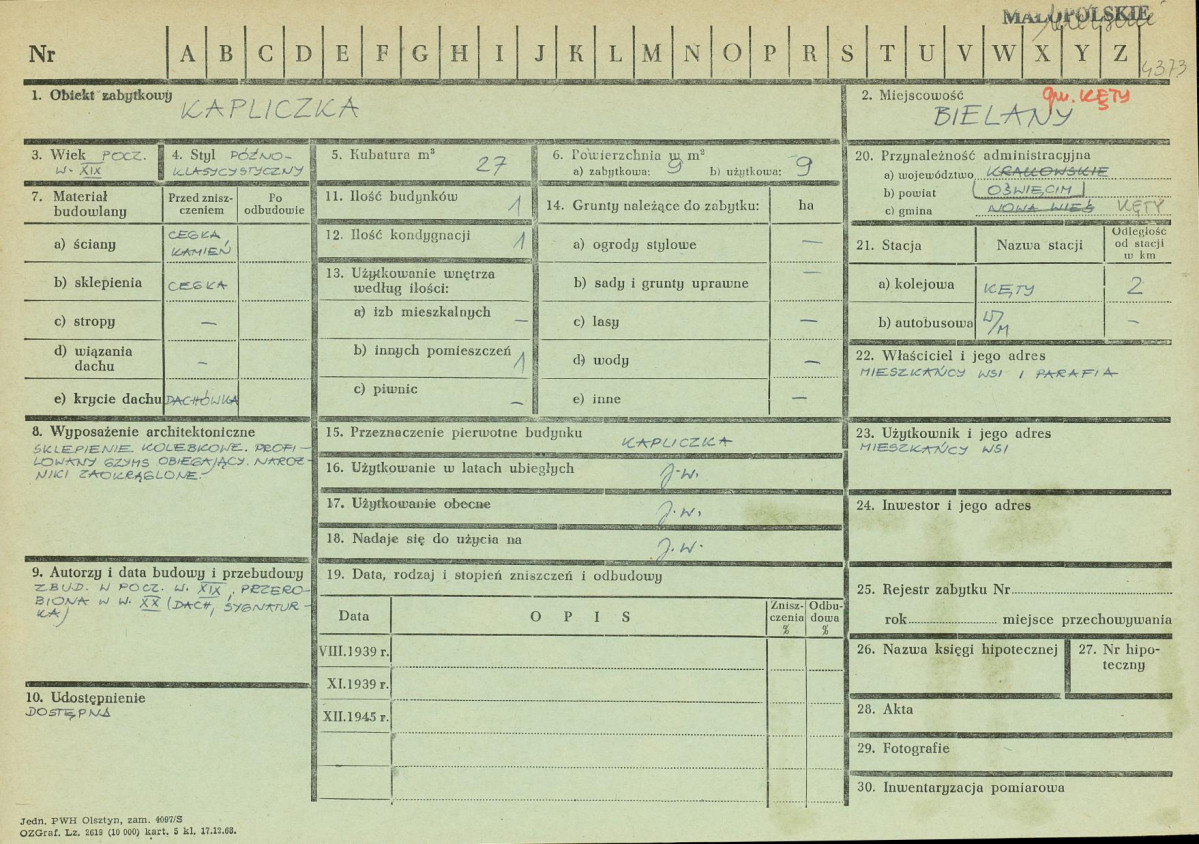 MAŁOPOLSKIE
Nr A B C D E F G H I J K L M N O P R S T U V W X Y Z
4373
1. Obiekt zabytkowy KAPLICZKA
2. Miejscowość gm. KĘTY
BIELANY
3. Wiek POCZ.
W. XIX
4. Styl PÓŹNO-
KLASYCYSTYCZNY
5. Kubatura m³ 27
6. Powierzchnia w m²
a) zabytkowa: 9 b) użytkowa: 9
20. Przynależność administracyjna
a) województwo KRAKOWSKIE
b) powiat OŚWIĘCIM
c) gmina NOWA WIEŚ KĘTY
7. Materiał budowlany
Przed znisz-
czeniem
Po
odbudowie
a) ściany CEGŁA
KAMIEŃ
b) sklepienia CEGŁA
c) stropy —
d) wiązania
dachu —
e) krycie dachu DACHÓWKA
11. Ilość budynków 1
12. Ilość kondygnacji 1
13. Użytkowanie wnętrza
według ilości:
a) izb mieszkalnych —
b) innych pomieszczeń 1
c) piwnic —
14. Grunty należące do zabytku: ha
a) ogrody stylowe —
b) sady i grunty uprawne —
c) lasy —
d) wody —
e) inne —
21. Stacja Nazwa stacji
Odległość
od stacji
w km
a) kolejowa KĘTY 2
b) autobusowa W/M —
22. Właściciel i jego adres
MIESZKAŃCY WSI I PARAFIA
8. Wyposażenie architektoniczne
SKLEPIENIE KOLEBKOWE. PROFI-
LOWANY GZYMS OBIEGAJĄCY. NAROŻ-
NIKI ZAOKRĄGLONE.
15. Przeznaczenie pierwotne budynku KAPLICZKA
16. Użytkowanie w latach ubiegłych J.W.
17. Użytkowanie obecne J.W.
18. Nadaje się do użycia na J.W.
23. Użytkownik i jego adres
MIESZKAŃCY WSI
24. Inwestor i jego adres
9. Autorzy i data budowy i przebudowy
ZBUD. W POCZ. W. XIX, PRZERO-
BIONA W W. XX (DACH, SYGNATUR-
KA)
10. Udostępnienie
DOSTĘPNA
19. Data, rodzaj i stopień zniszczeń i odbudowy
Data O P I S
Znisz-
czenia
%
Odbu-
dowa
%
VIII.1939 r.
XI.1939 r.
XII.1945 r.
25. Rejestr zabytku Nr
rok miejsce przechowywania
26. Nazwa księgi hipotecznej
27. Nr hipo-
teczny
28. Akta
29. Fotografie
30. Inwentaryzacja pomiarowa
Jedn. PWH Olsztyn, zam. 4097/S
OZGraf. Lz. 2619 (10 000) kart, 5 kl. 17.12.68.